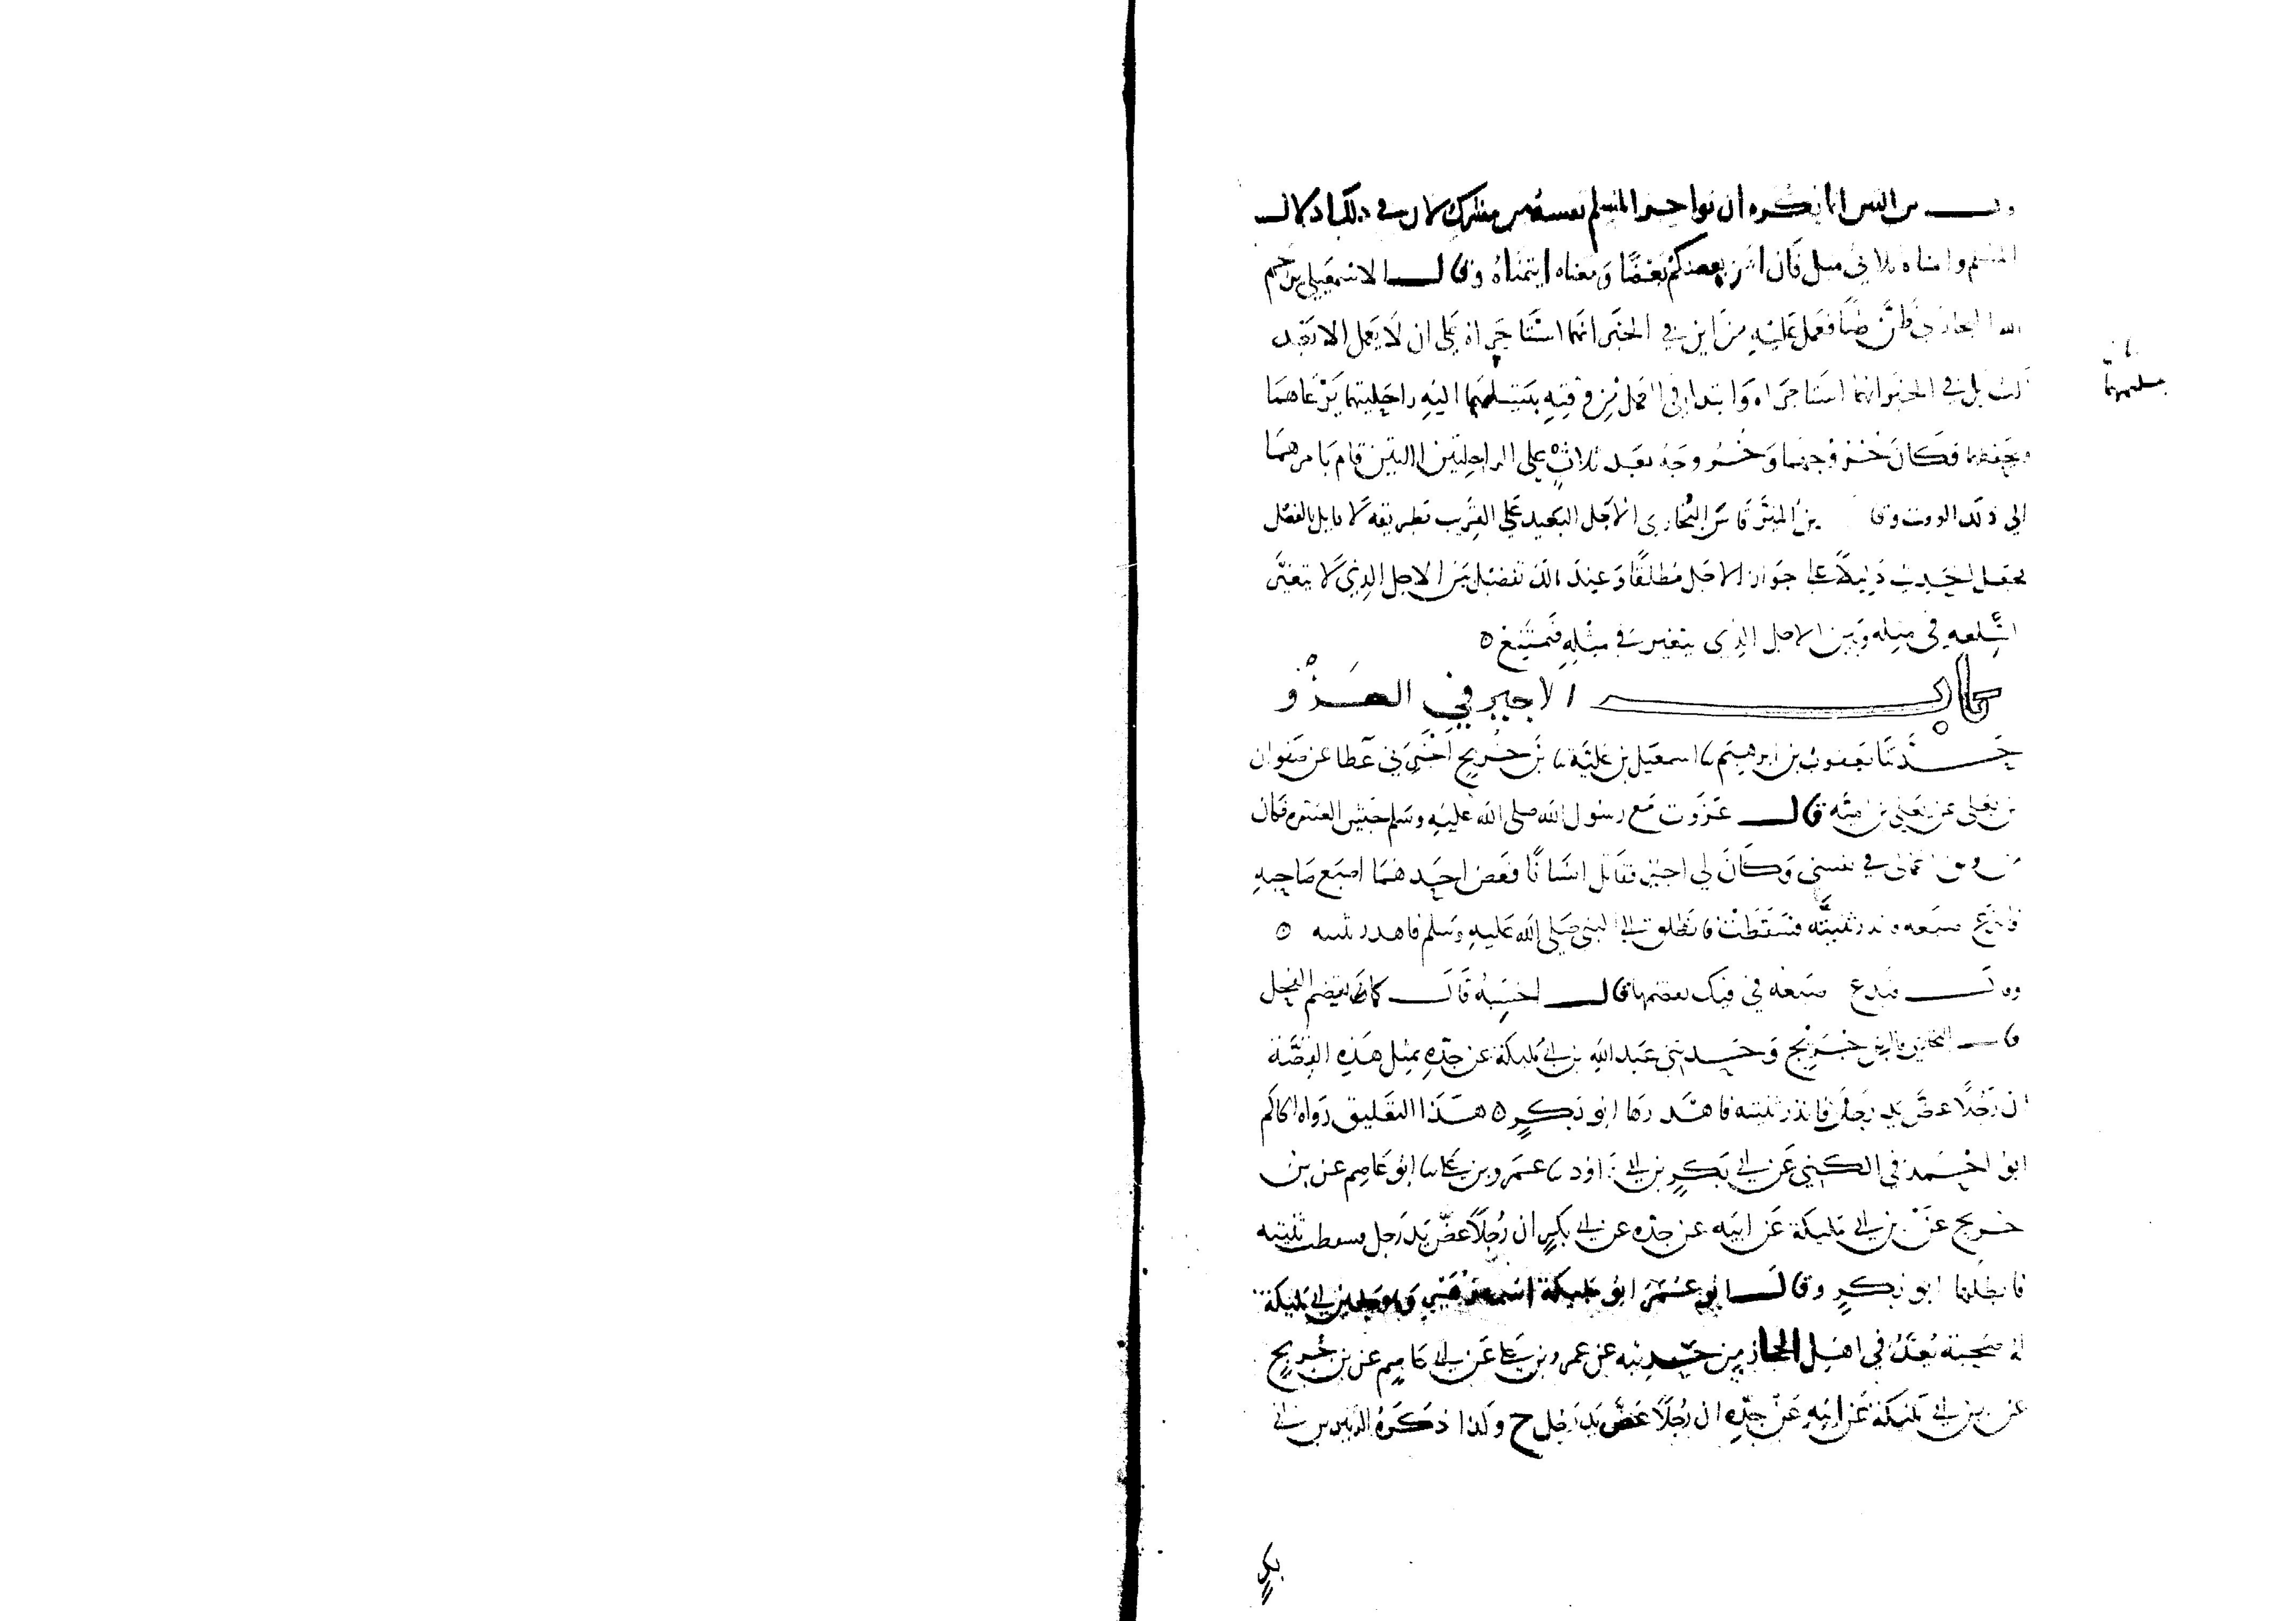 من الناس انما يكره ان يواجر المسلم نفسه من مشرك لان في ذلك اذلال
المسلم وامناه ثلاثي مثل فان امن بعضكم بعضا ومعناه ايتمناه وقال الاسمعيلي رحم
الله البخاري ظن ظنا فعمل عليه من اين في الخبر انهما استاجراه على ان لا يعمل الا بعد
ثلث بل في الخبر انهما استاجراه وابتدا في العمل من وقته بتسلمهما اليه راحلتيهما يرعاهما
ويحفظهما فكان خروجهما وخروجه بعد ثلاث على الراحلتين اللتين قام بامرهما
الى ذلك الوقت وقال بن المنير قاس البخاري الاجل البعيد على القريب بطريقه لا قايل بالفصل
فجعل الحديث دليلا على جواز الاجل مطلقا وعند مالك تفصيل بين الاجل الذي لا تتغير
السلعه في مثله وبين الاجل الذي يتغير في مثله فيمتنع ٥
باب الاجير في الغزو
حدثنا يعقوب بن ابرهيم نا اسمعيل بن علية نا بن جريج اخبرني عطا عن صفوان
بن يعلى عن يعلى بن اميه قال غزوت مع رسول الله صلى الله عليه وسلم جيش العسره فكان
من اوثق اعمالى في نفسي وكان لي اجير فقاتل انسانا فعض احدهما اصبع صاحبه
فانتزع اصبعه فاندر ثنيته فسقطت فانطلق الى النبي صلى الله عليه وسلم فاهدر ثنيته ٥
وقال فيدع اصبعه في فيك تقضمها قال احسبه قال كما يقضم الفحل
قال البخاري قال بن جريج وحدثني عبد الله بن ابي مليكة عن جده بمثل هذه القصة
ان رجلا عض يد رجل فاندر ثنيته فاهدرها ابو بكر ٥ هذا التعليق رواه الحاكم
ابو احمد في الكنى عن ابي بكر بن ابي داود نا عمرو بن علي نا ابو عاصم عن بن
جريج عن بن ابي مليكة عن ابيه عن جده عن ابي بكر ان رجلا عض يد رجل فسقطت ثنيته
فابطلها ابو بكر وقال ابو عمر ابو مليكة
له صحبة يعد في اهل الحجاز من حديثه عن عمرو بن علي عن ابي عاصم عن بن جريج
عن بن ابي مليكة عن ابيه عن جده ان رجلا عض يد رجل ح وكذا ذكره الزبير بن ابي
بكر